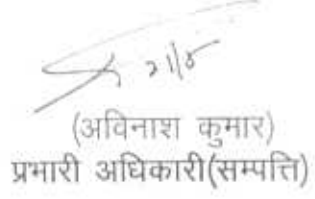 21/8
(अविनाश कुमार)
प्रभारी अधिकारी(सम्पत्ति)